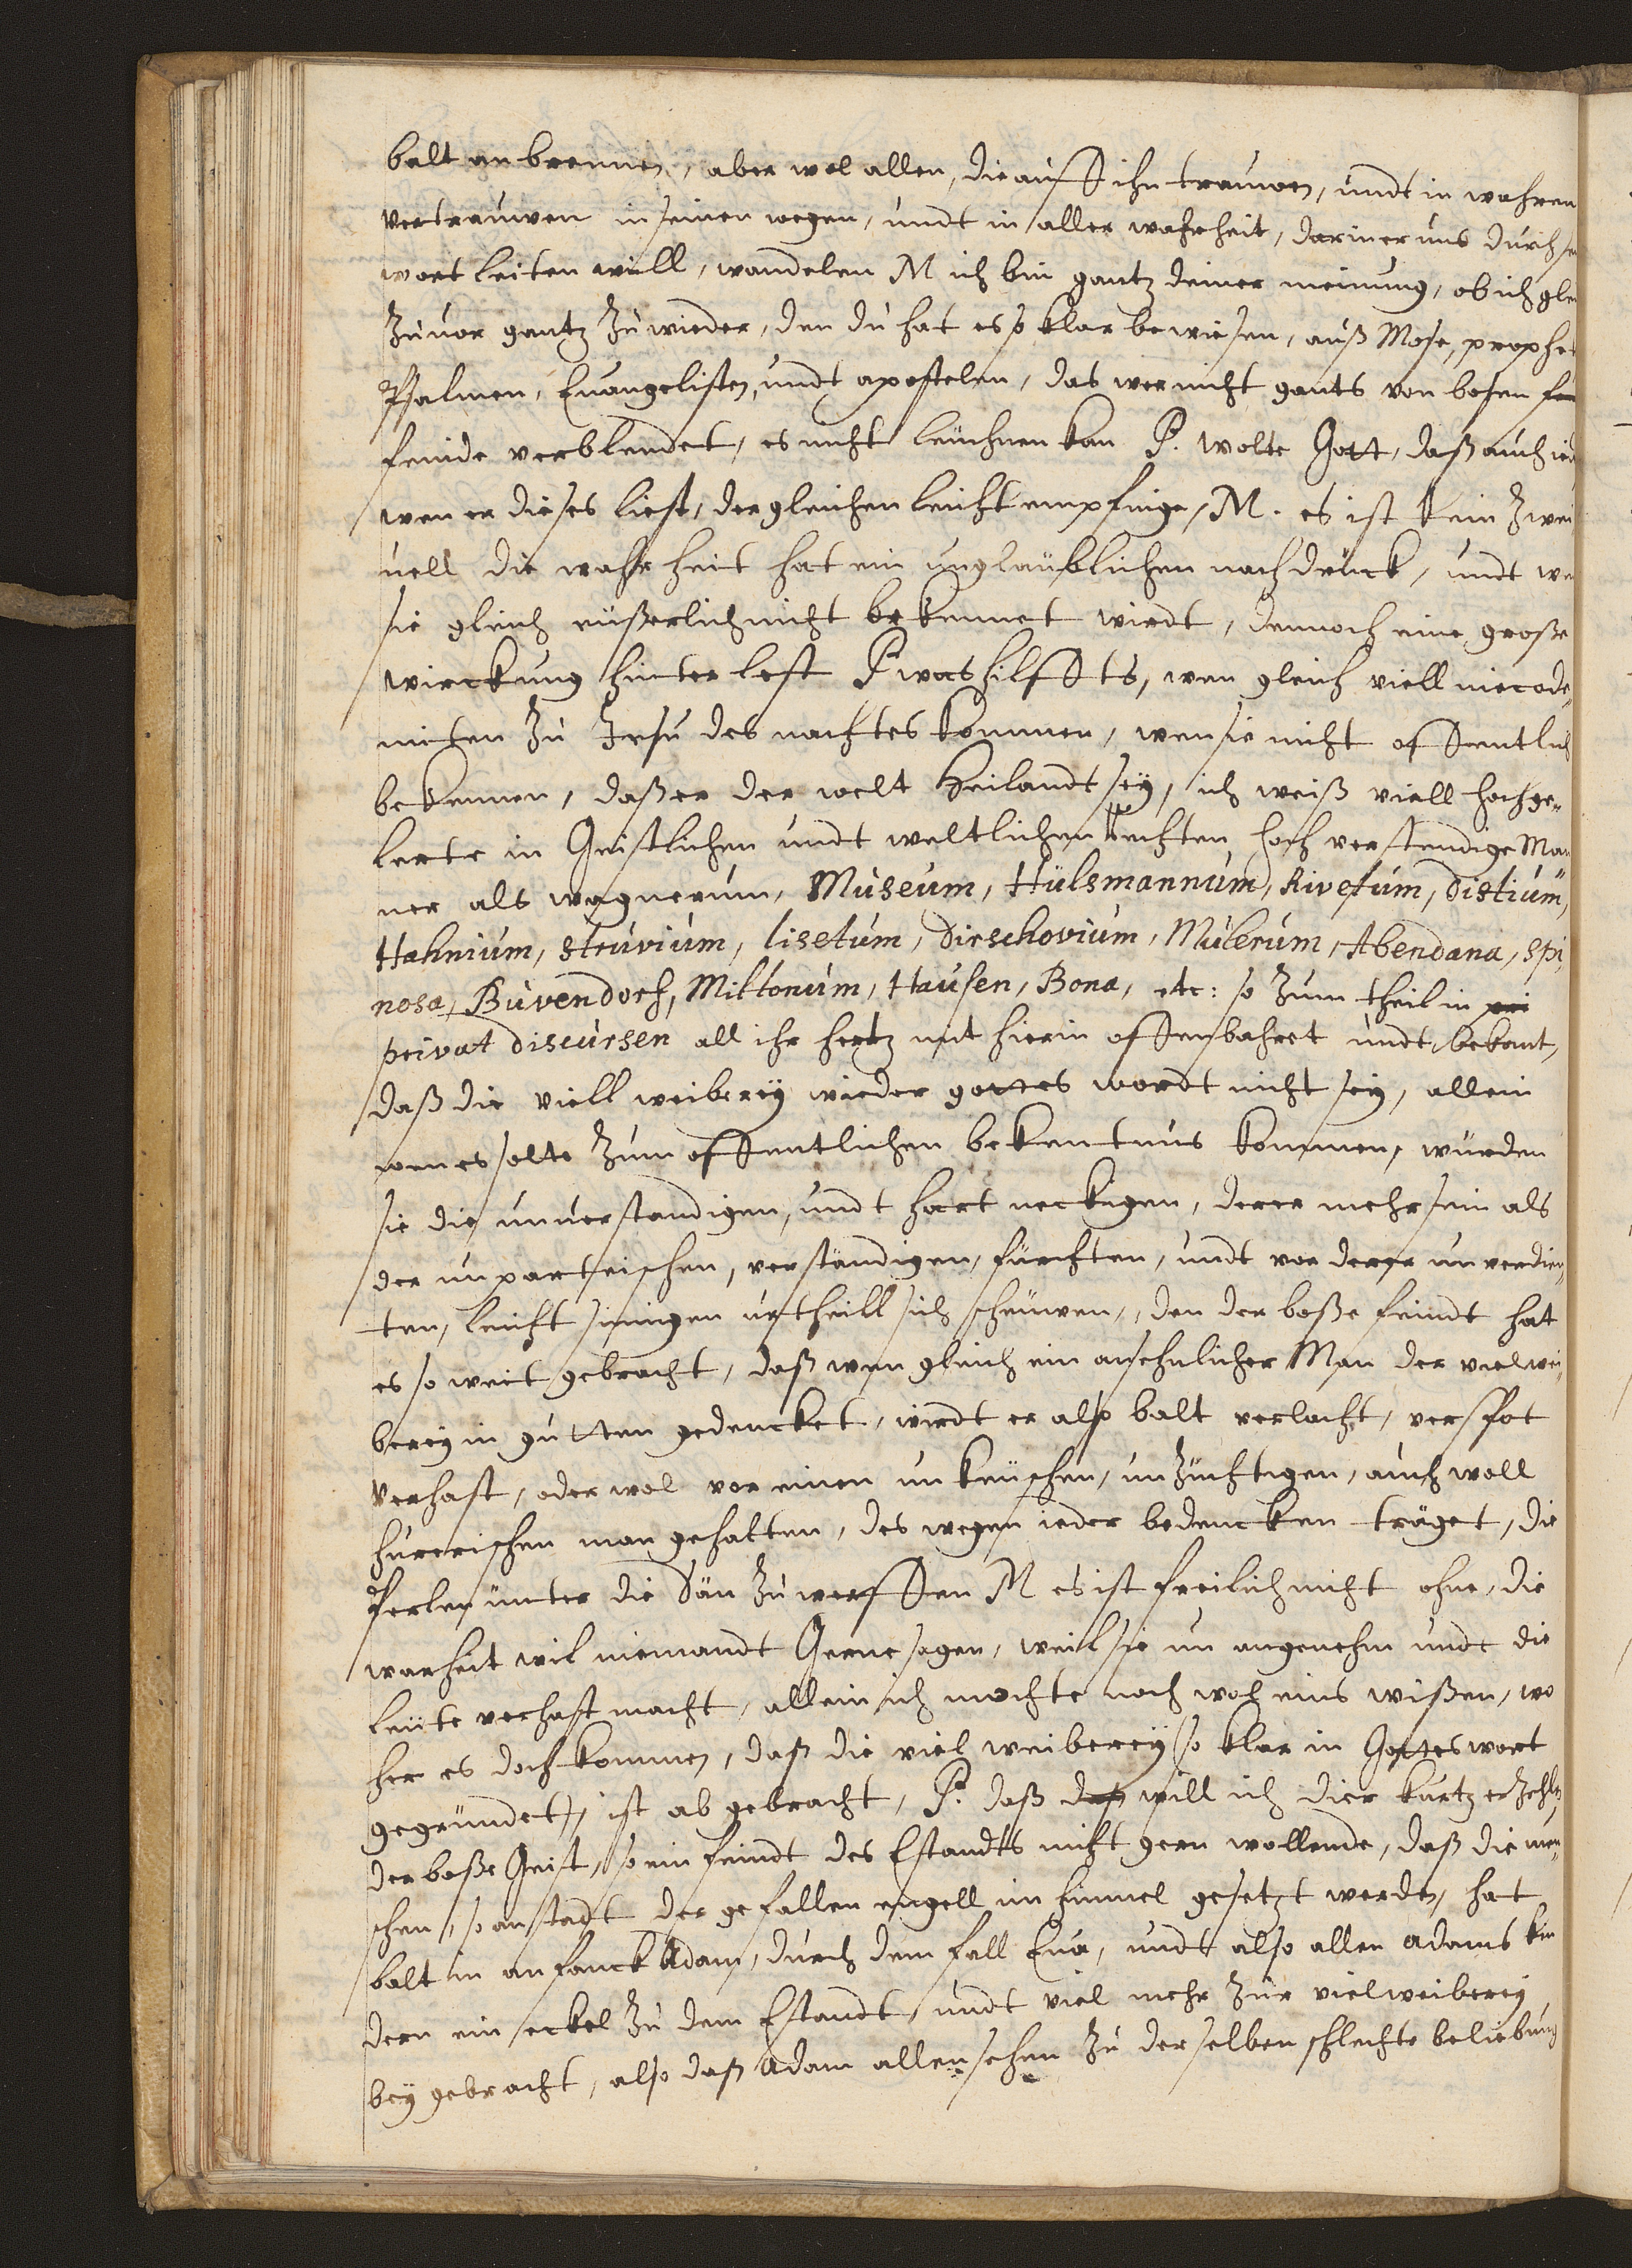 balt an brennen, aber wol allen, die auff ihn trauwen, undt in wahren
vertrauwen in seinen wegen, undt in aller wahrheit, darin er uns durch se
wort leiten will, wandelen M ich bin gantz deiner meinung, ob ich gle
zuvor gantz zuwieder, den du hat es so klar bewiesen, auß Mose, prophe
Psalmen, Evangelisten, undt apostelen, das wer nicht gants von bosen
feinde verblendet, es nicht leuchnen kan P. wolte Gott, daß auch ied
wen er dieses liest, dergleichen leicht empfinge, M. es ist kein zwei
vell die wahrheit hat ein unglaublichen nachdruck, undt we
sie gleich eüßerlich nicht bekennet wirdt, dennoch eine große
wirckung hinterlest P was hilffts, wen gleich viell nicode,
miten zu Jesu des nachtes kommen, wen sie nicht offentlich
bekennen, daß er der welt Heilandt sey, ich weiß viell hochge-
lerte in Geistlichen undt weltlichen rechten hoch verstendige Man
ner als wagnerum, Museum, Hülsmannum, Rivetum, distium,
Hahnium, struvium, lisetum, dirschovium, Mulerum, Abendana, spi,
nosa, Buvendorf, Miltonum, Hausen, Bona, etc: so zum theil in pri
privat discursen all ihr hertz mit hierin offenbahret undt bekant,
daß die viell weiberey wieder gottes wordt nicht sey, allein
wen es solte zum offentlichen bekentnus kommen, würden
sie die unverstandigen, undt hartneckigen, derer mehr sein als
der unparteischen, verständigen, fürchten, undt vor derer unverdien,
ten, leichtsinnigen urtheill sich scheuwen, den der boße feindt hat
es so weit gebracht, daß wen gleich ein ansehnlicher Man der vielwei,
berey in gutten gedencket, wirdt er also balt verlacht, verspot
verhast, oder wol vor einen unkeuschen, unzüchtigen, auch woll
hurerischen man gehalten, des wegen ieder bedencken träget, die
Perlen unter die Säu zu werffen M es ist freilich nicht ohne, die
warheit wil niemandt Gerne sagen, weil sie unangenehm undt die
leute verhast macht, allein ich mochte noch woh eins wißen, wo
her es doch kommen, daß die viel weiberey so klar in Gottes wort
gegründet, ist ab gebracht, P. daß das will ich dier kurtz erzehlen
der boße Geist, so ein feindt des Estandts nicht gern wollende, daß die men,
schen, so anstadt der gefallen engell im himmel gesetzt werden, hat
balt in anfanck Adam, durch dem fall Eva, undt also allen adams kin
dern ein eckel zu dem Estandt, undt viel mehr zur vielweiberey
bey gebracht, also daß Adam allensehen zu derselben schlechte beliebung